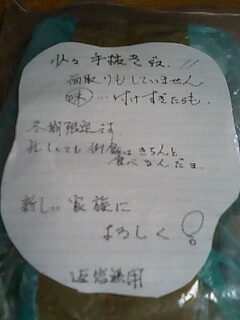 少々 手抜き故 !!
面取りもしていません
味…付けすぎたらも.
冬期限定です
忙しくても 御飯はきちんと
食べるんだヨ
新しい家族に
よろしく
返信無用